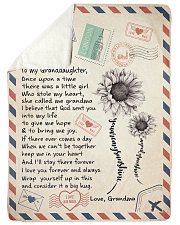 To my Granddaughter,
Once upon a time
there was a little girl
Who stole my heart,
she called me grandma
I believe that God sent you
into my life
to give me hope
& to bring me joy.
If there ever comes a day
When we can't be together
keep me in your heart
And I'll stay there forever
I love you forever and always
Wrap yourself up in this
and consider it a big hug.
Love, Grandma